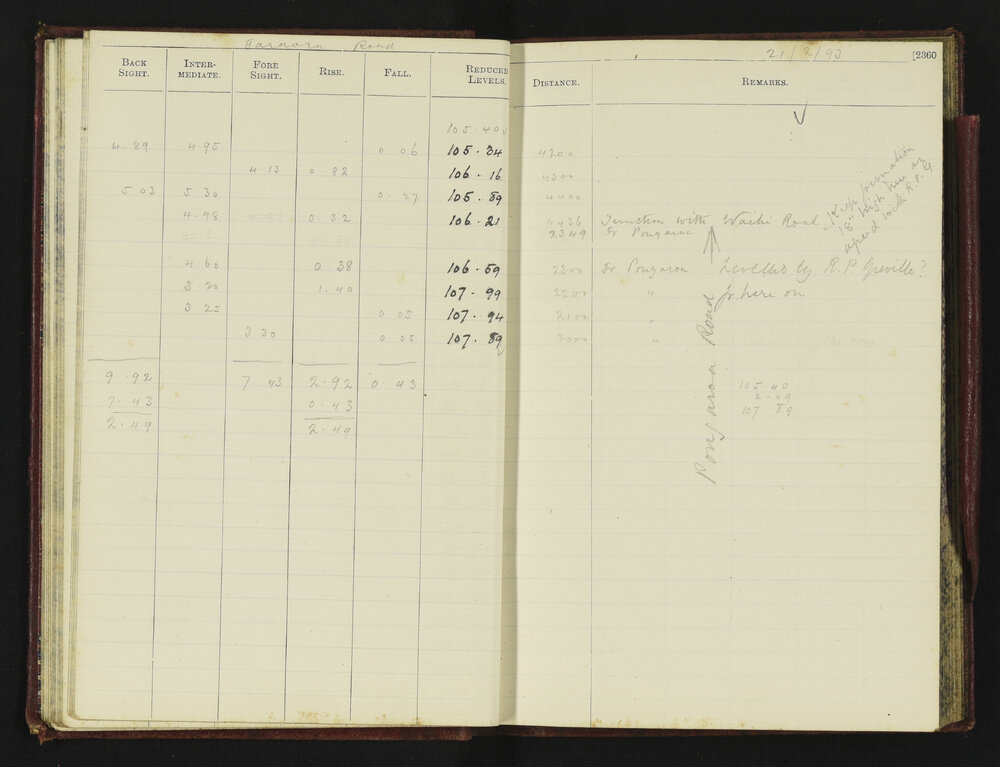 Road 21/2/93 [2360
BACK SIGHT. INTER-MEDIATE. FORE SIGHT. RISE. FALL. REDUCED LEVELS. DISTANCE. REMARKS.
105.40
4.89 4.95 0.06 105.34 4200
4.13 0.82 106.16 4300
5.03 5.30 0.27 105.89 4400
4.98 0.32 106.21 4436 Junction with Waihi Road
2349 fr Pongaroa
4.60 0.38 106.59 2300 fr. Pongaroa Levelled by R.P. Greville?
3.20 1.40 107.99 2200 " fr here on
3.25 0.05 107.94 2100 "
3.30 0.05 107.89 2000 "
9.92 7.43 2.92 0.43
7.43 0.43
2.49 2.49
105.40
2.49
107.89
Pongaroa Road
Keep formation
18" high here as
agreed with R.P.G